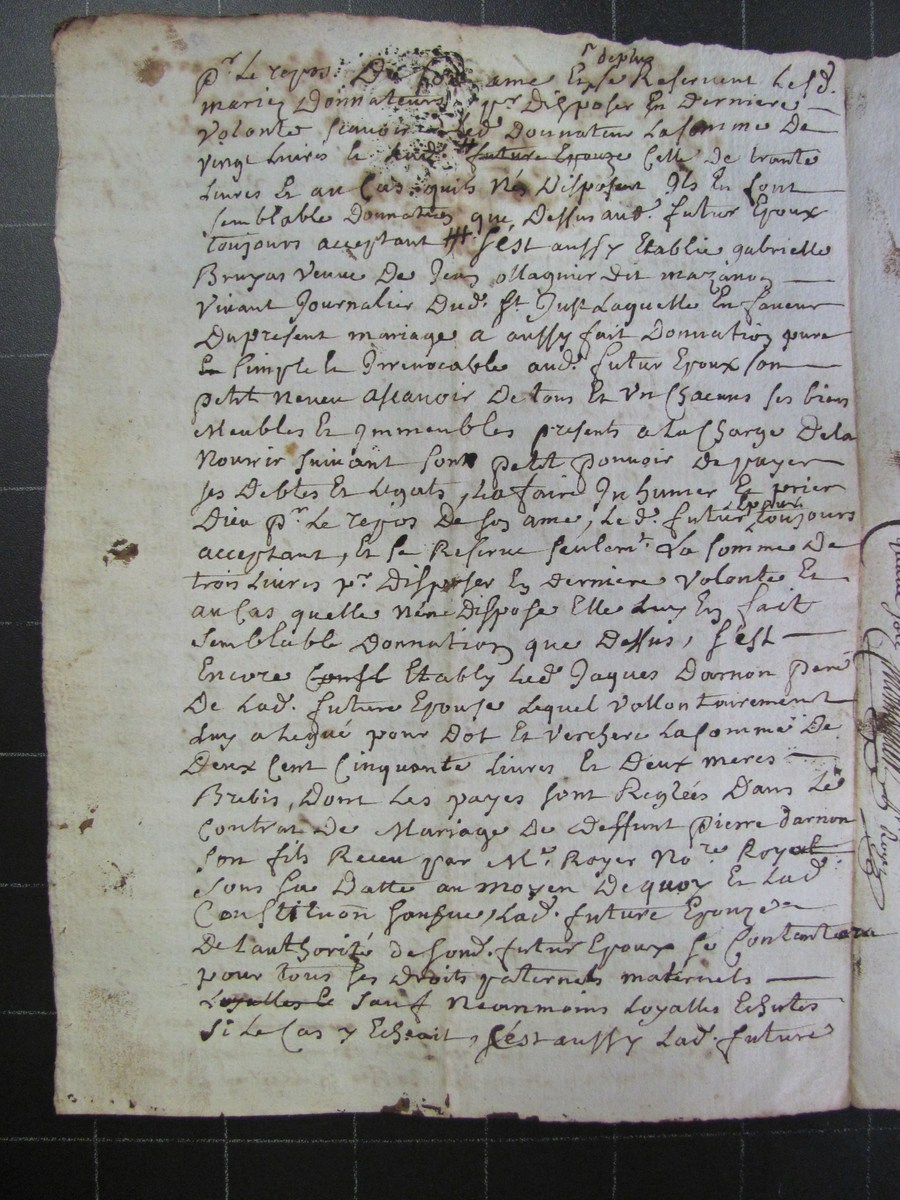 r deplus
pr. le repos De son ame Et se Reservent Lesd.
mariez Donnateurs pr. Disposer En Derniere
volonte scavoir Led. Donnateur La somme De
vingt Livres le # future Epouze Celle De trante
Livres Et au Cas quils Nen Disposent Ils En font
semblable Donnation que Dessus aud. futur Epoux
toujours acceptant # S'est aussy Etablie gabrielle
Bruyas veuve De Jean ollagnier dit mazanon
vivant Journalier Dud. St. Just Laquelle En faveur
Du present mariage a aussy fait Donnation pure
Et Simple Et Irrevocable aud. futur Epoux son
petit neveu ascavoir De tous Et Vn Chacuns ses biens
Meubles Et Immeubles presents a La Charge De la
Nourir suivant son petit pouvoir De payer
ses Debtes Et Legats, La faire Inhumer Et prier
Dieu pr. Le repos De son ame, Le d. futur Epoux toujours
acceptant, Et se Reserve seulemt. La somme De
trois Livres pr. Disposer En derniere volonte Et
au Cas quelle N'en Dispose Elle Luy En fait
semblable Donnation que Dessus, s'est
Encore Const Etably Led. Jaques Darnon pere
De Lad. future Epouse Lequel vollontairement
Luy a Legué pour Dot Et verchere La somme De
Deux Cent Cinquante Livres Et Deux meres
Brebis, Dont Les payes sont Reglées Dans Le
Contrat De Mariage De deffunt pierre darnon
son fils Receu par Me. Royer Nore. Royal
sous sa Datte au moyen De quoy Et Lad.
Constituon Lad. future Epouze
De l'authorité de sond. futur Epoux se Contantera
pour tous ses droits paternels maternels
Loyalles Et sauf Neanmoins Loyalles Echutes
si Le Cas y Echeait, s'est aussy Lad. future